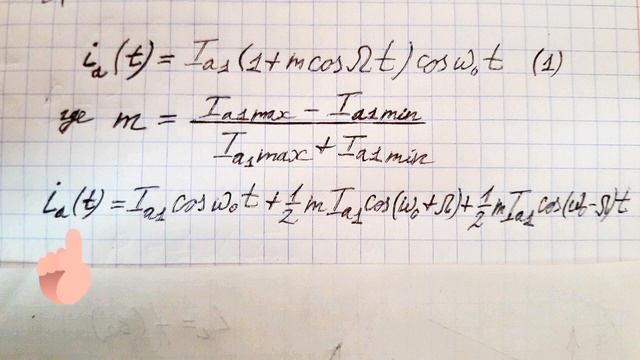 i_a(t) = I_a1(1 + m cos Ω t) cos ω_0 t (1)
где m = (I_a1max − I_a1min) / (I_a1max + I_a1min)
i_a(t) = I_a1 cos ω_0 t + 1/2 m I_a1 cos(ω_0 + Ω) + 1/2 m I_a1 cos(ω_0 − Ω)t